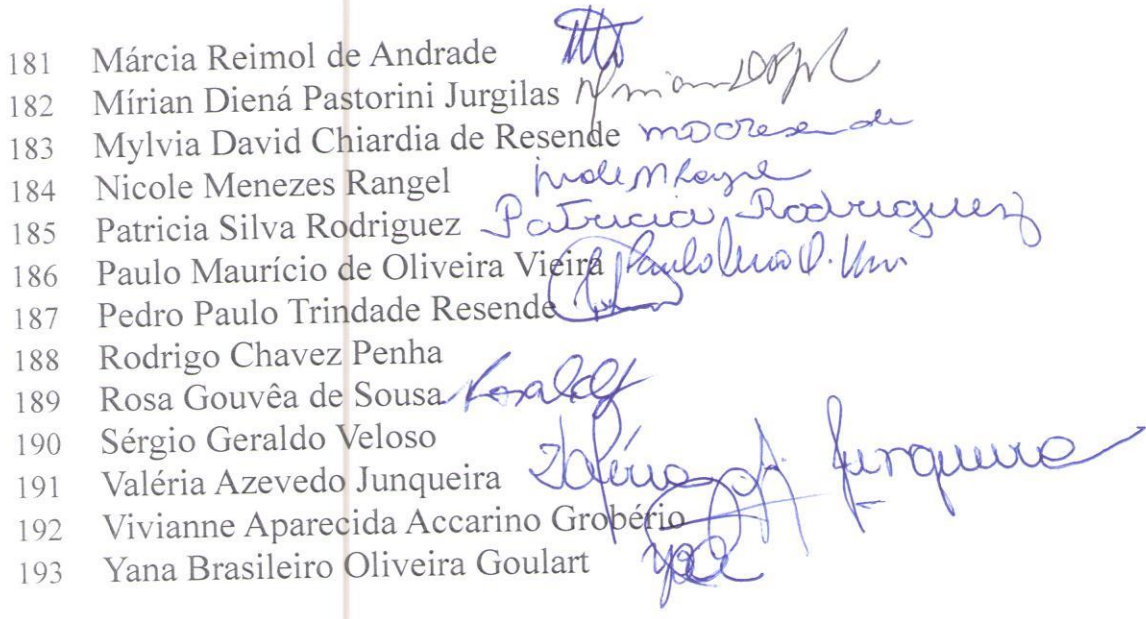 181 Márcia Reimol de Andrade
182 Mírian Diená Pastorini Jurgilas
183 Mylvia David Chiardia de Resende MDCResende
184 Nicole Menezes Rangel
185 Patricia Silva Rodriguez Patricia Rodriguez
186 Paulo Maurício de Oliveira Vieira
187 Pedro Paulo Trindade Resende
188 Rodrigo Chavez Penha
189 Rosa Gouvêa de Sousa
190 Sérgio Geraldo Veloso
191 Valéria Azevedo Junqueira Valéria A. Junqueira
192 Vivianne Aparecida Accarino Grobério
193 Yana Brasileiro Oliveira Goulart